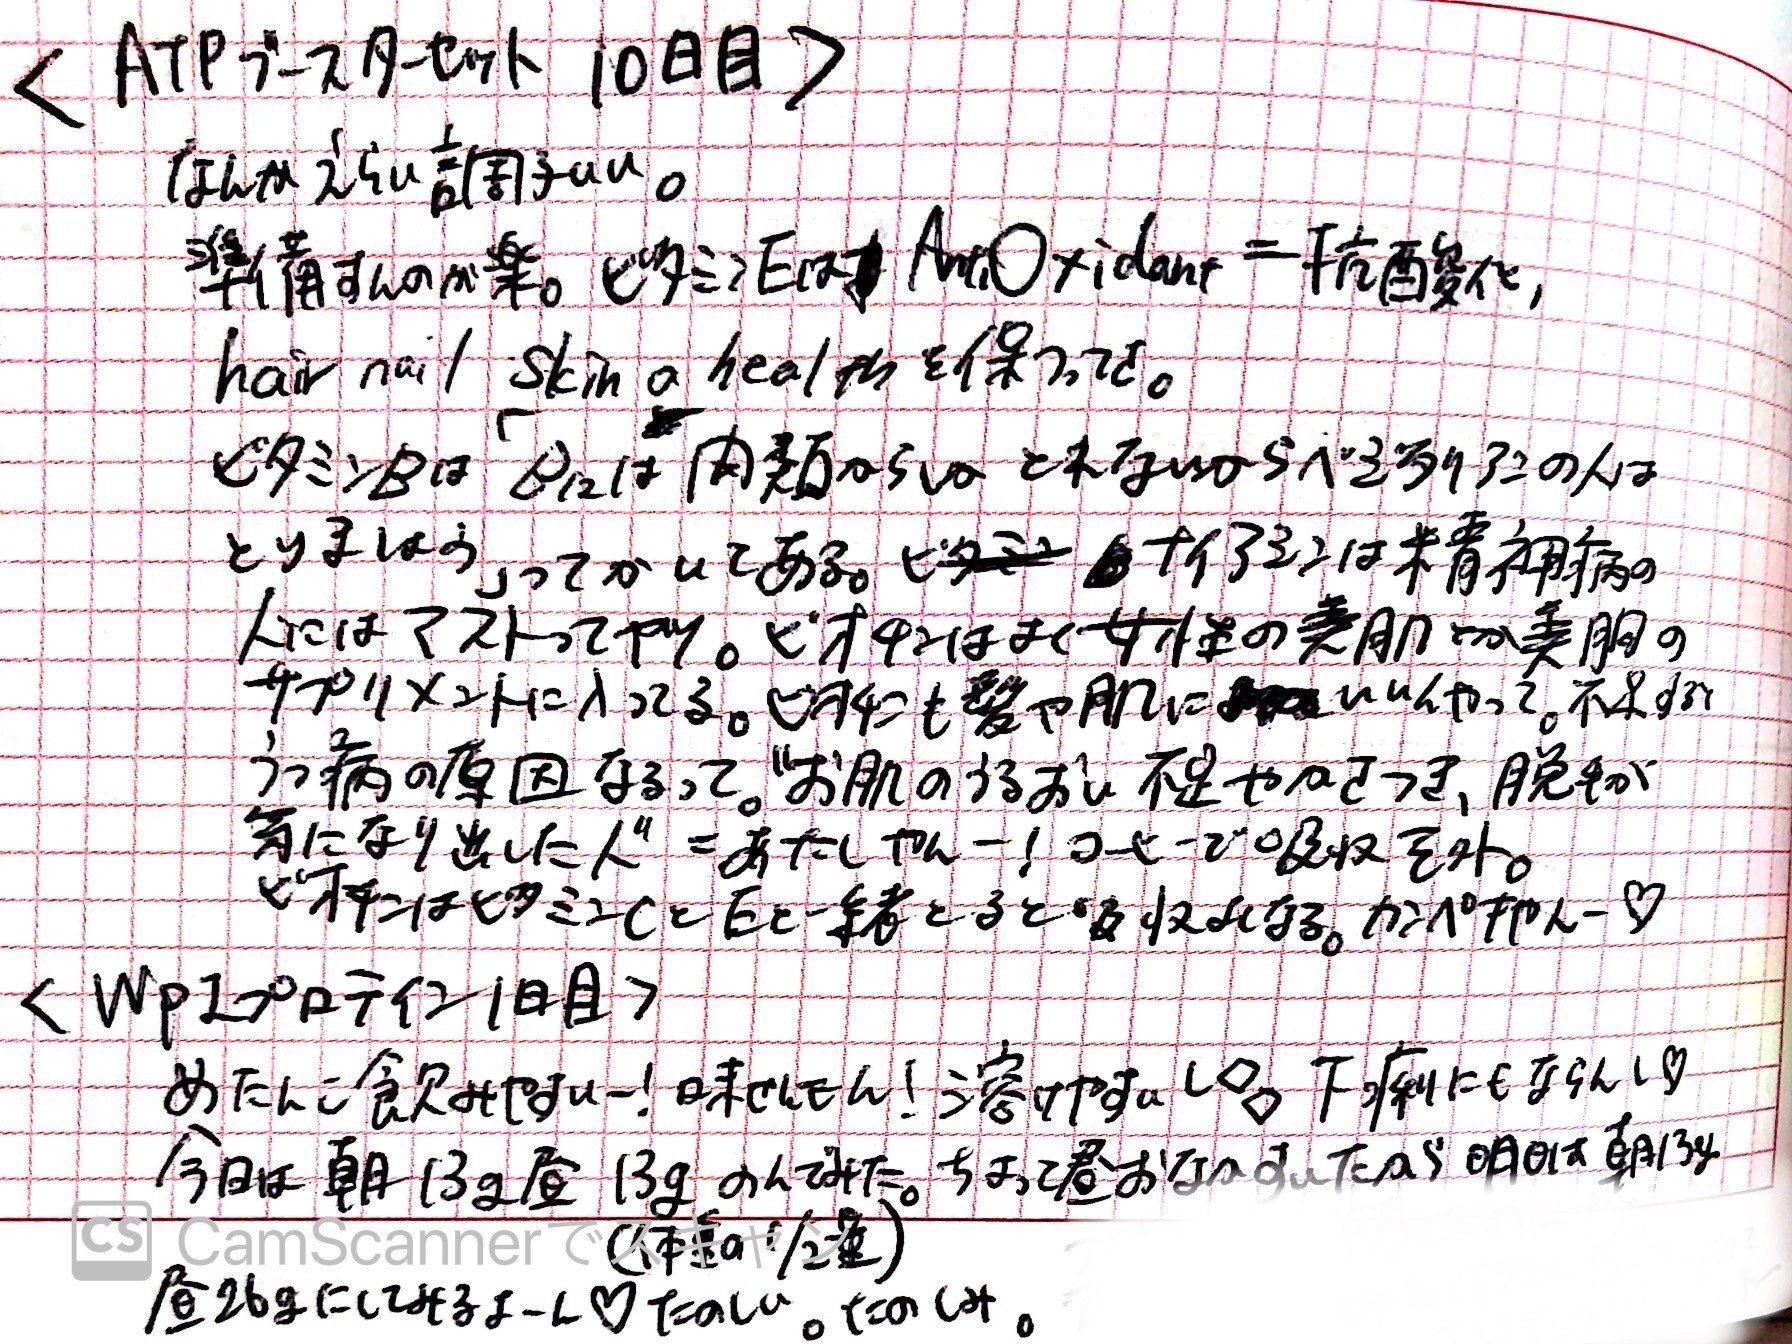 <ATPブースターセット 10日目>
なんかえらい調子いい。
準備すんのが楽。ビタミンEは AntiOxidant = 抗酸化,
hair nail skin a health を保つって。
ビタミンBは「B12は肉類からしか とれないからベジタリアンの人は
とりましょう」ってかいてある。ビタミン ナイアシンは精神病の
人にはマストってやつ。ビオチンはよく女性の美肌とか美容の
サプリメントに入ってる。ビオチンも髪や肌に いいんやって。不足すると
うつ病の原因なるって。"お肌のうるおい不足やかさつき、脱毛が
気になり出した人" = あたしやんー! コーヒーで吸収モタ。
ビオチンはビタミンCとEと一緒とると吸収よくなる。カンペキやんー♡
<WpIプロテイン1日目>
めたんこ飲みやすいー! 味せんもん! 溶けやすいし◇◇ 下痢にもならんし♡
今日は朝13g昼13gのんでみた。ちょって昼おなかすいたから明日は朝13g
(体重の1/2量)
昼26gにしてみるよーん♡たのしい。たのしみ。
CS CamScannerでスキャン